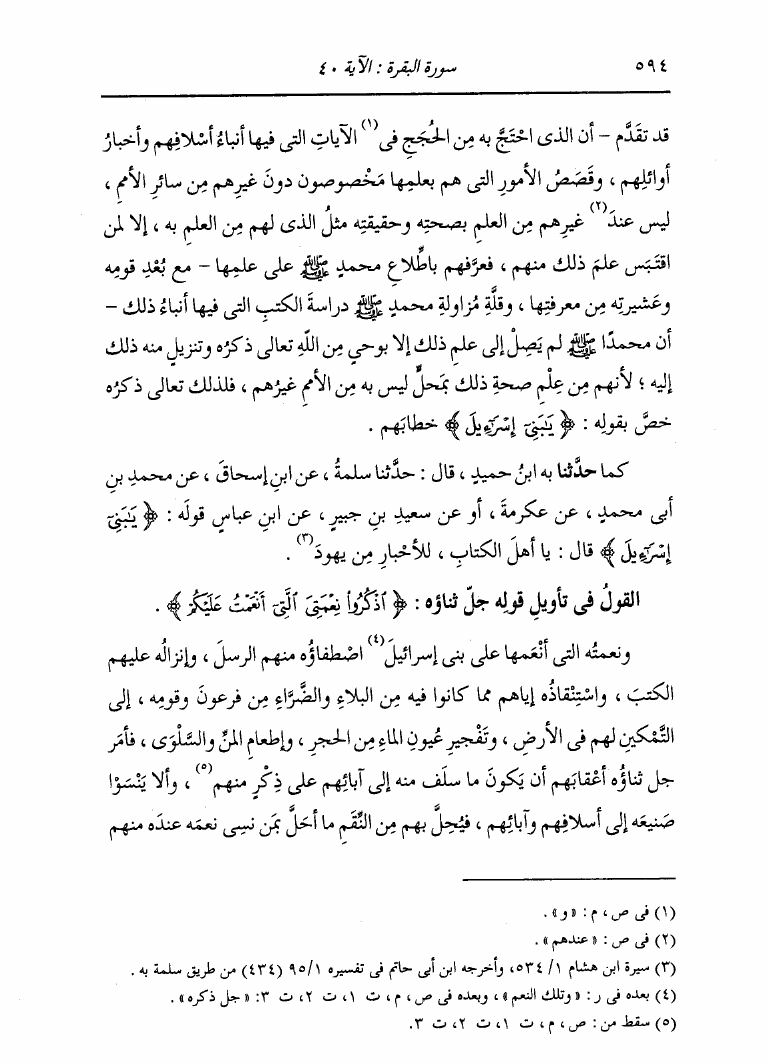 ٥٩٤ سورة البقرة : الآية ٤٠
قد تقَدَّم – أن الذى احْتَجَّ به مِن الحُجَجِ فى(١) الآياتِ التى فيها أنباءُ أسْلافِهم وأخبارُ
أوائلِهم ، وقَصَصُ الأمورِ التى هم بعلمِها مَخْصوصون دونَ غيرِهم مِن سائرِ الأممِ ،
ليس عندَ(٢) غيرِهم مِن العلمِ بصحتِه وحقيقتِه مثلُ الذى لهم مِن العلمِ به ، إلا لمن
اقتَبَس علمَ ذلك منهم ، فعرَّفهم باطِّلاعِ محمدٍ ﷺ على علمِها – مع بُعْدِ قومِه
وعَشيرتِه مِن معرفتِها ، وقلَّةِ مُزاولةِ محمدٍ ﷺ دراسةَ الكتبِ التى فيها أنباءُ ذلك –
أن محمدًا ﷺ لم يَصِلْ إلى علمِ ذلك إلا بوحيٍ مِن اللَّهِ تعالى ذكرُه وتنزيلٍ منه ذلك
إليه ؛ لأنهم مِن عِلْمِ صحةِ ذلك بمَحلٍّ ليس به مِن الأممِ غيرُهم ، فلذلك تعالى ذكرُه
خصَّ بقولِه : ﴿ يَٰبَنِىٓ إِسْرَٰٓءِيلَ ﴾ خطابَهم .
كما حدَّثنا به ابنُ حميدٍ ، قال : حدَّثنا سلمةُ ، عن ابنِ إسحاقَ ، عن محمدِ بنِ
أبى محمدٍ ، عن عكرمةَ ، أو عن سعيدِ بنِ جبيرٍ ، عن ابنِ عباسٍ قولَه : ﴿ يَٰبَنِىٓ
إِسْرَٰٓءِيلَ ﴾ قال : يا أهلَ الكتابِ ، للأحْبارِ مِن يهودَ(٣) .
القولُ فى تأويلِ قولِه جلّ ثناؤه : ﴿ ٱذْكُرُوا۟ نِعْمَتِىَ ٱلَّتِىٓ أَنْعَمْتُ عَلَيْكُمْ ﴾ .
ونعمتُه التى أنْعَمها على بنى إسرائيلَ(٤) اصْطفاؤُه منهم الرسلَ ، وإنزالُه عليهم
الكتبَ ، واسْتِنْقاذُه إياهم مما كانوا فيه مِن البلاءِ والضَّرَّاءِ مِن فرعونَ وقومِه ، إلى
التَّمْكينِ لهم فى الأرضِ ، وتَفْجيرِ عُيونِ الماءِ مِن الحجرِ ، وإطعامِ المنِّ والسَّلْوَى ، فأمَر
جل ثناؤُه أعْقابَهم أن يَكونَ ما سلَف منه إلى آبائِهم على ذِكْرٍ منهم(٥) ، وألا يَنْسَوْا
صَنيعَه إلى أسلافِهم وآبائِهم ، فيُحِلَّ بهم مِن النِّقَمِ ما أحَلَّ بمَن نسِى نعمَه عندَه منهم
(١) فى ص ، م : «و» .
(٢) فى ص : «عندهم» .
(٣) سيرة ابن هشام ١/ ٥٣٤، وأخرجه ابن أبى حاتم فى تفسيره ٩٥/١ (٤٣٤) من طريق سلمة به .
(٤) بعده فى ر : «وتلك النعم» ، وبعده فى ص ، م ، ت ١، ت ٢، ت ٣: «جل ذكره» .
(٥) سقط من : ص ، م ، ت ١، ت ٢، ت ٣.